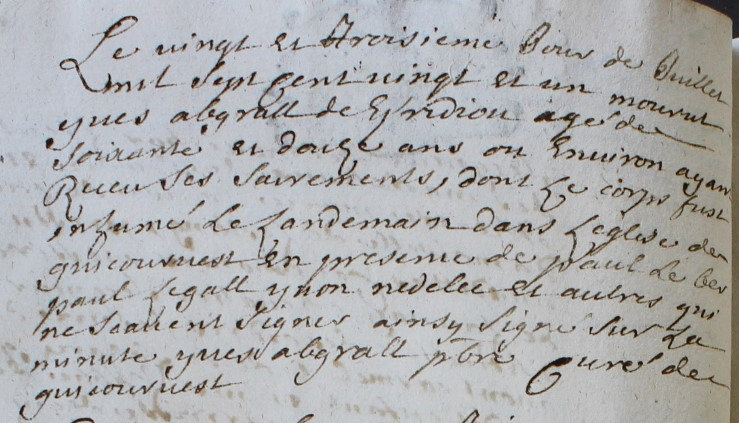 Le vingt et troisieme Jour de Juillet
mil sept Cent vingt et un mourut
yues abgrall de agé de
soixante et douze ans ou Environ ayant
Receu ses sacrements, dont Le corps fust
inhumé Le Landemain dans Leglise de
guicourvest En presence de paul Le ber
paul Legall yuon nedelec et autres qui
ne scauent signer ainsy signé sur La
minute yues abgrall pbre Curé de
guicourvest